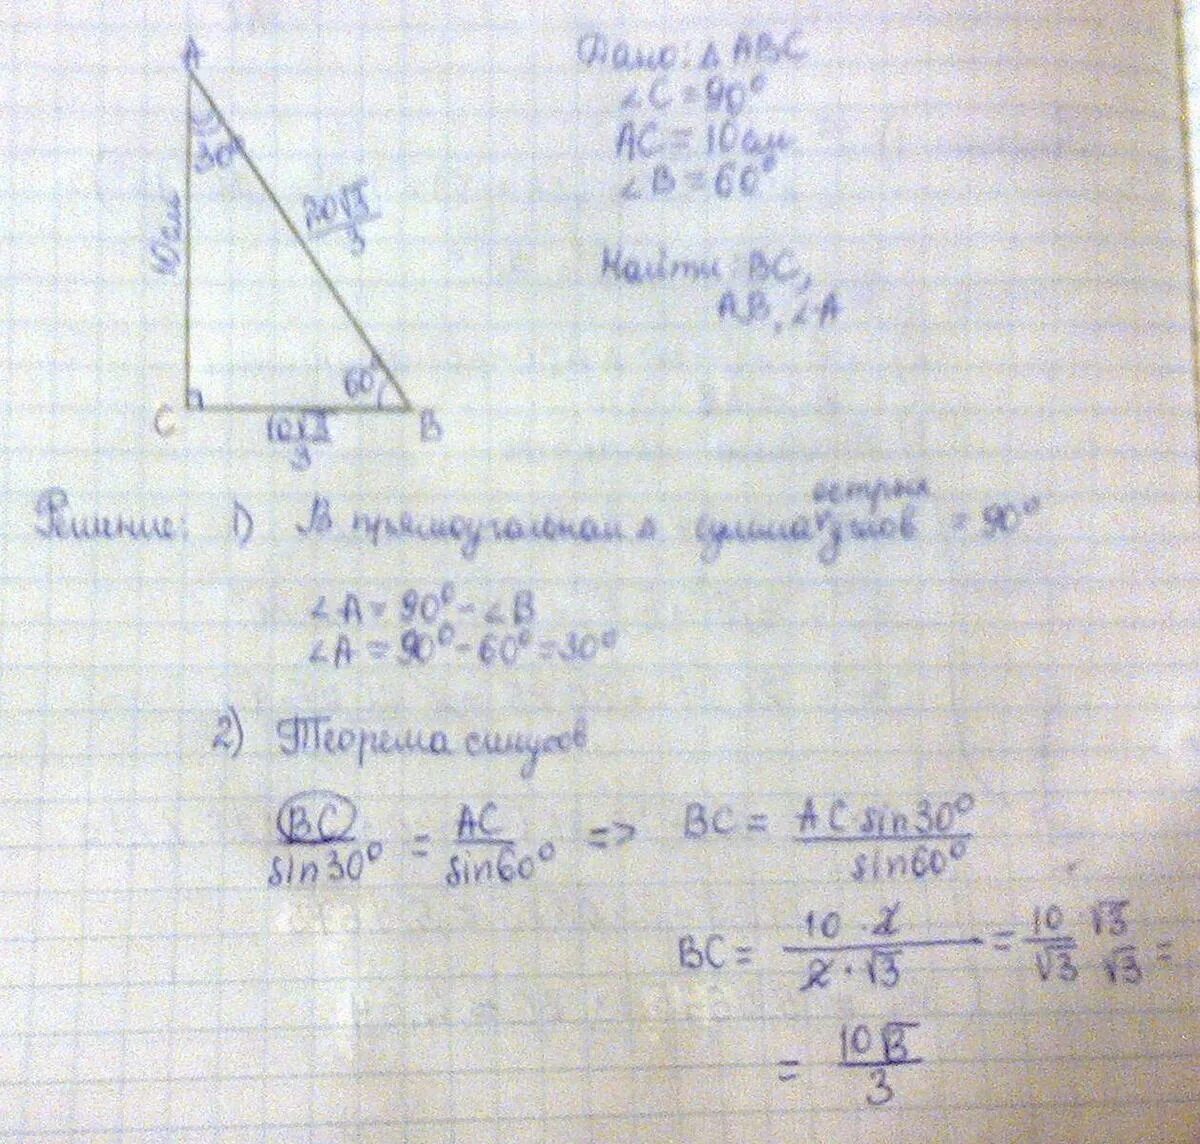 A
30°
10 см
20√3
3
60°
C
B
10√3
3
Дано: ∆ ABC
∠C = 90°
AC = 10 см
∠B = 60°
Найти: BC,
AB, ∠A
Решение: 1) В прямоугольном ∆ сумма острых углов = 90°
∠A = 90° - ∠B
∠A = 90° - 60° = 30°
2) Теорема синусов
BC/sin30° = AC/sin60° => BC = AC·sin30°/sin60°
BC = 10·2/2·√3 = 10/√3 √3/√3 =
= 10√3/3